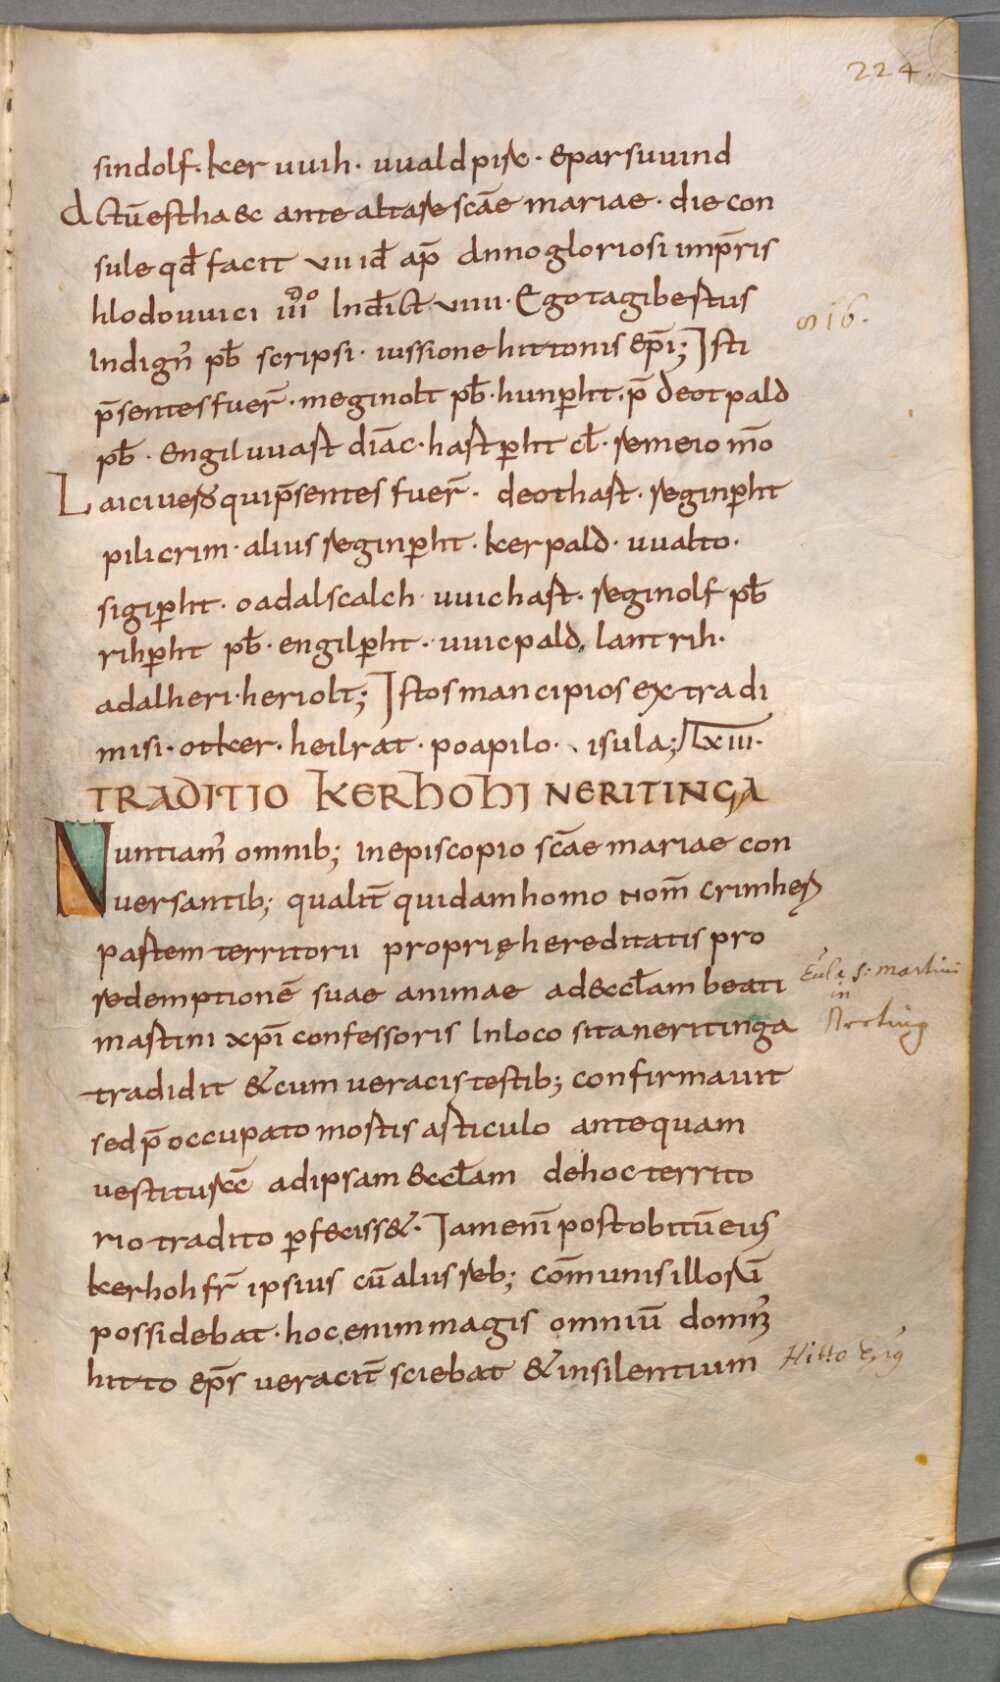 224.
sindolf. ker uuih. uuald pirc. &parsuuind
Actū est haec ante altare scāe mariae. die con
sule qđ facit vii id ap̄ dnno gloriosi imp̄ris
hlodouuici iii° Indict. viiii. Ego tagibertus
816.
Indign' pƀ scripsi. iussione hittonis ep̄i; Isti
p̄sentes fuer̄. meginolt pƀ. hunꝑht. p̄ deotpald
pƀ. engiluuast diāc. hastꝑht cł. remeio mō
Laici uero qui p̄sentes fuer̄. deothast. reginꝑht
pilicrim. alius reginꝑht. kerpald. uualto.
sigiꝑht. oadalscalch. uuichast. reginolf pƀ
rihꝑht pƀ. engilꝑht. uuicpald, lantrih.
adalheri. heriolt; Istos mancipios ex tradi
misi. otker. heilrat. poapilo. isula; LXIII.
TRADITIO KERHOHI NERITINGA
Nuntiam' omnib; in episcopio scāe mariae con
uersantib; qualit̄ quidam homo nom̄ crimheri
partem territorii proprię hereditatis pro
redemptionē suae animae ad eccl̄am beati
Eccl̄a s. martini
in
Nerting
martini xp̄i confessoris In loco sita neritinga
tradidit & cum ueracis testib; confirmauit
sed p̄occupato mortis articulo antequam
uestituręē ad ipsam eccl̄am de hoc territo
rio tradito ꝑfeciss&. Iam enī post obitū eius
kerhoh fr̄ ipsius cū aliis reb; cōmunis illorū
possidebat. hoc enim magis omniū domn'
hitto ep̄s ueracit̄ sciebat & in silentium
Hitto Ep̄us